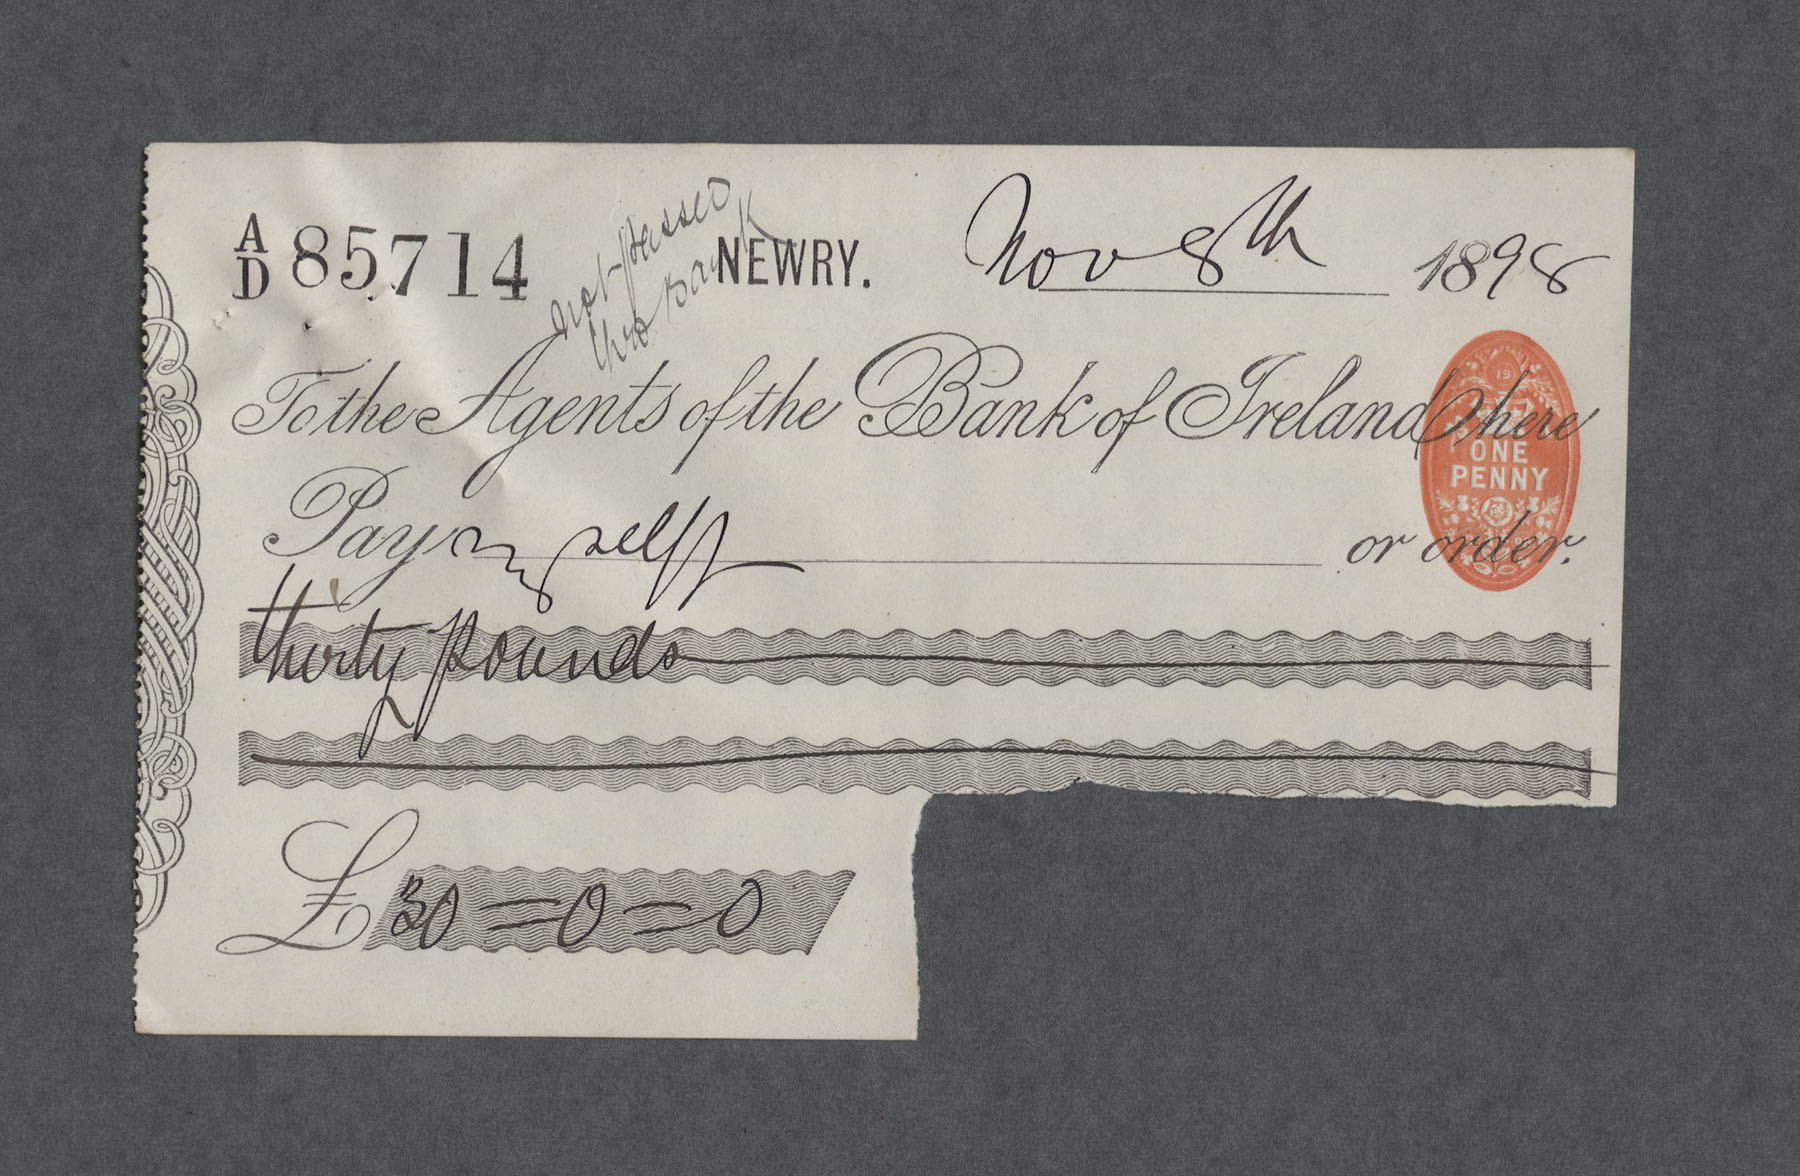 A/D 85714
not passed
thro Bank
NEWRY. Nov 8th 1898
To the Agents of the Bank of Ireland here
19
ONE
PENNY
Pay myself or order.
thirty pounds
£ 30=0=0